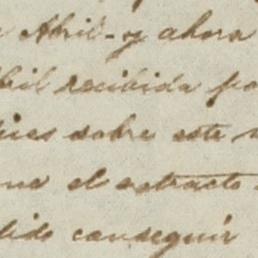 Abril - y ahora
bril recibida po
sobre este
ue el estracto
dido conseguir